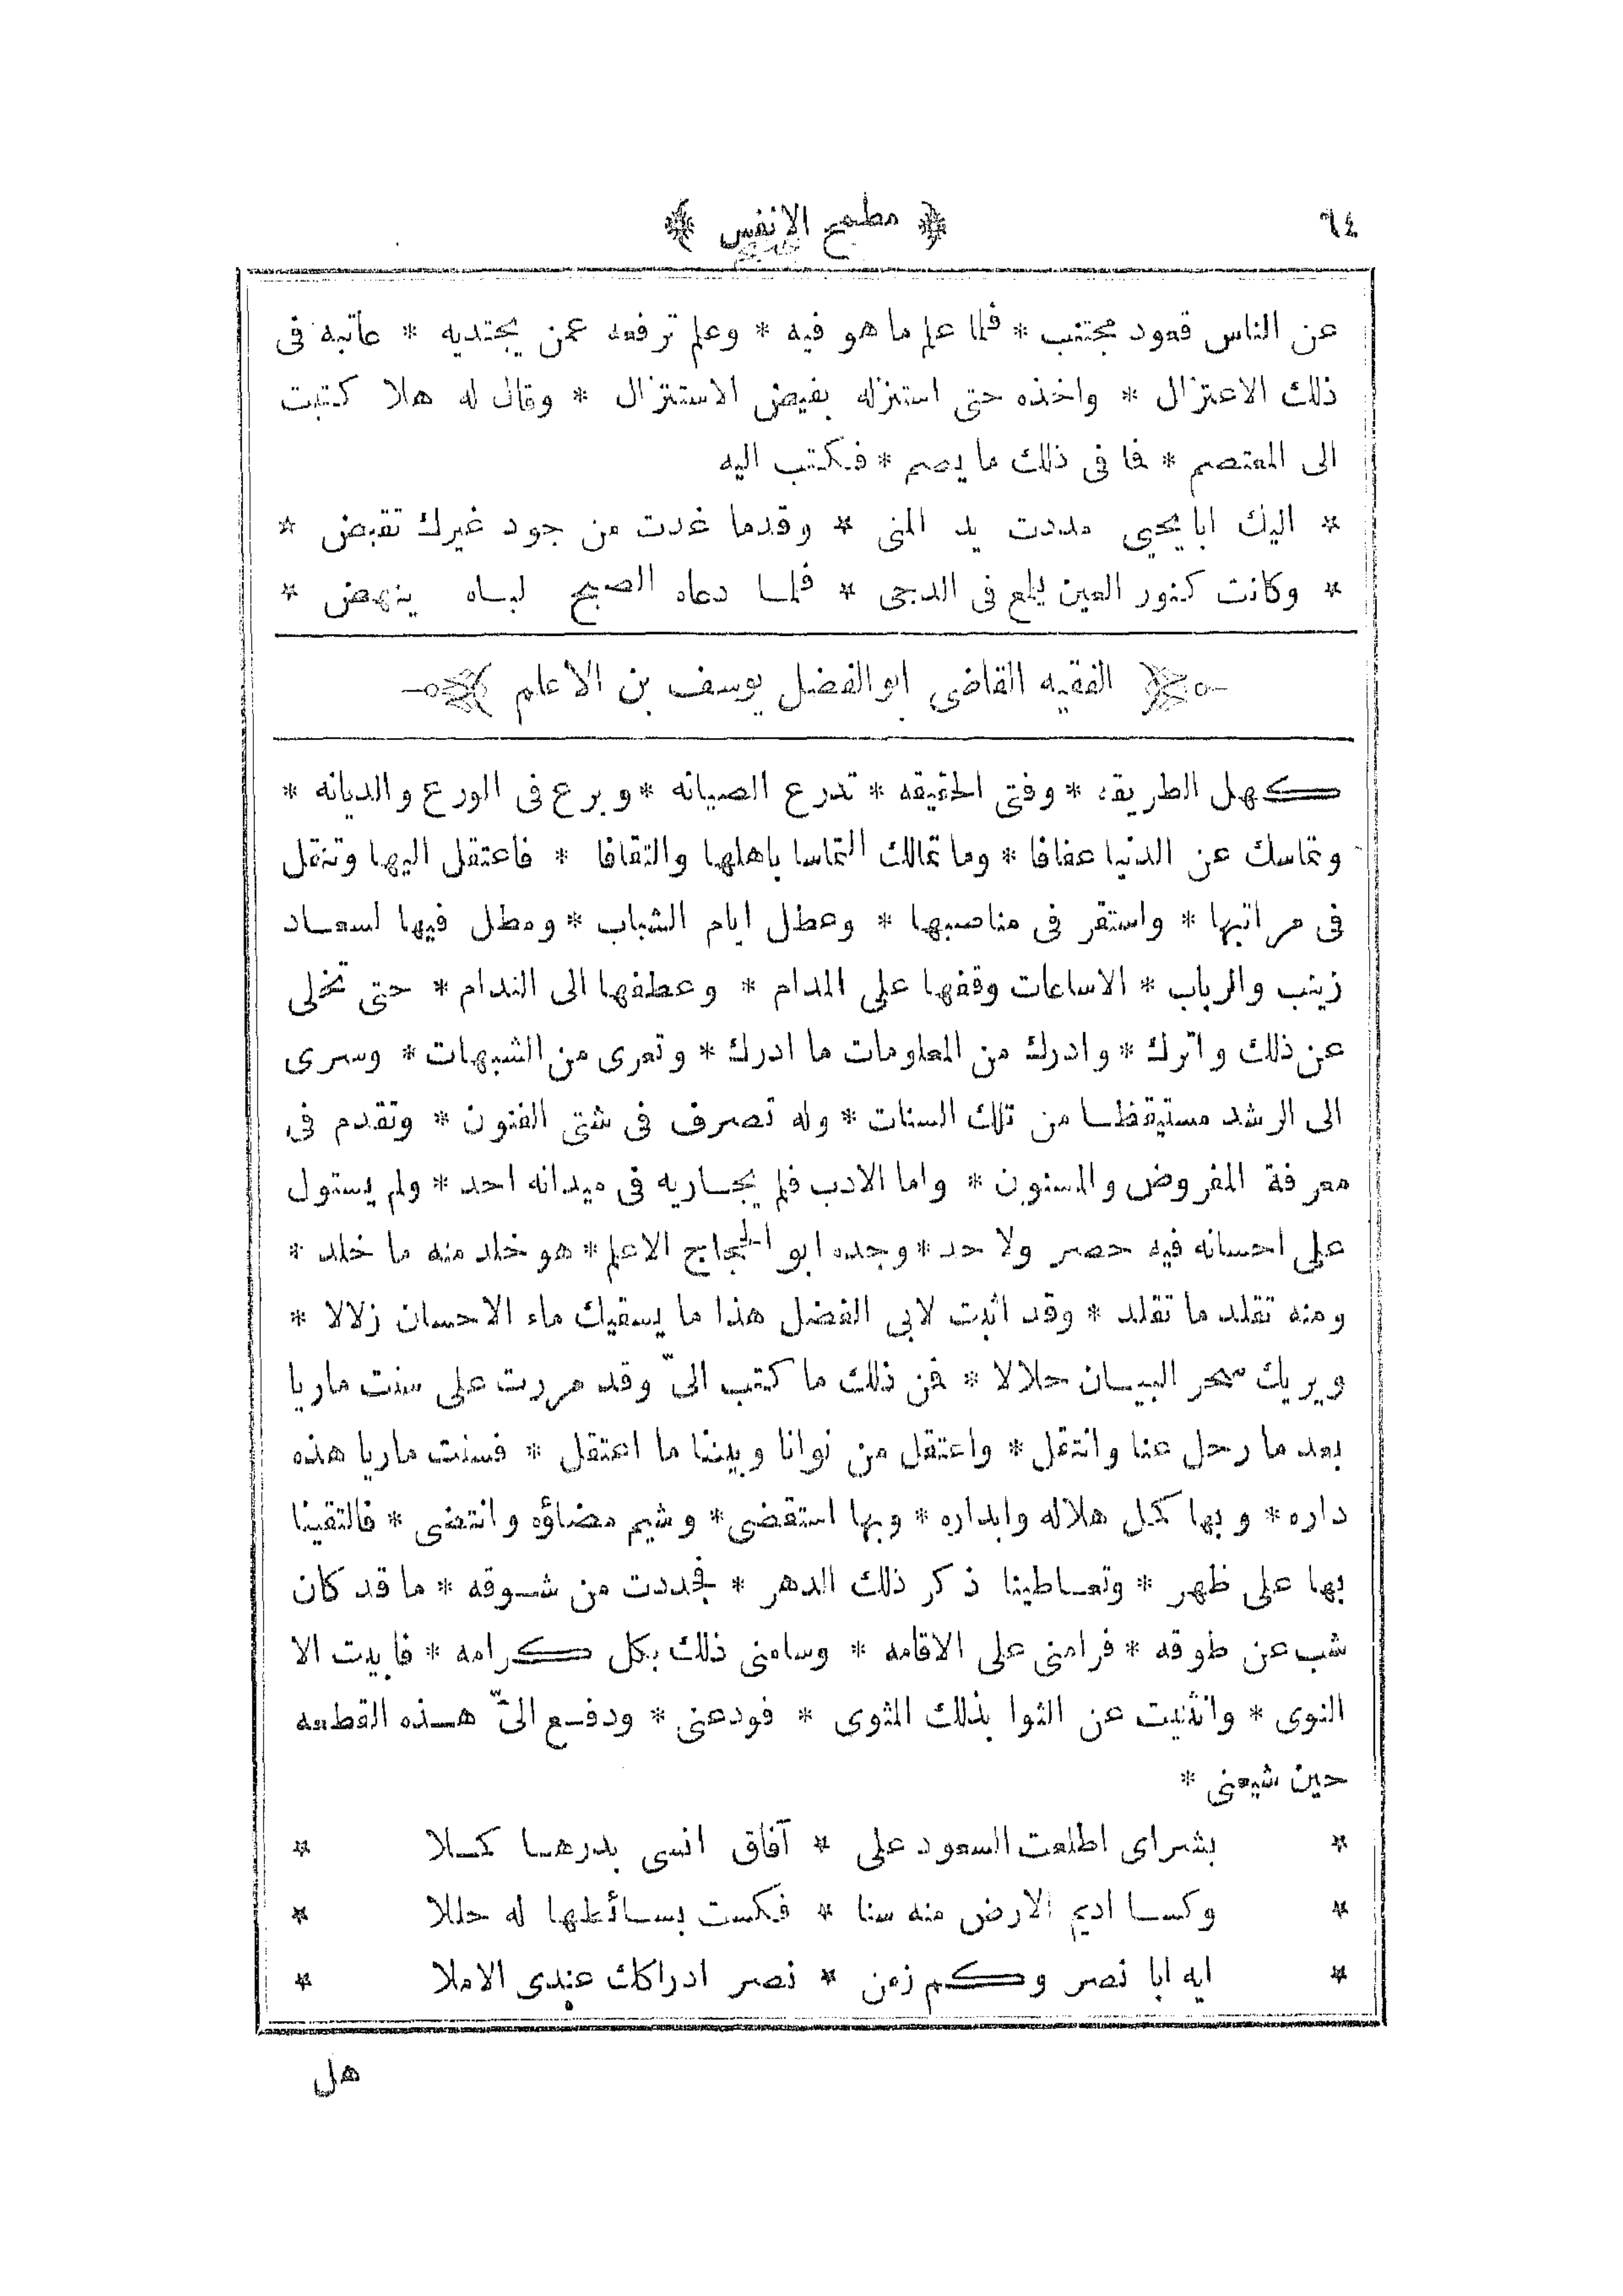 ٦٤ ﴿ مطمح الانفس ﴾
عن الناس قعود مجتنب * فلما علم ما هو فيه * وعلم ترفعه عمن يجتديه * عاتبه فى
ذلك الاعتزال * واخذه حتى استنزله بفيض الاستنزال * وقال له هلا كتبت
الى المعتصم * فما فى ذلك ما يصم * فكتب اليه
* اليك ابا يحيى مددت يد المنى * وقدما غدت من جود غيرك تقبض *
* وكانت كنور العين يلمع فى الدجى * فلما دعاه الصبح لباه ينهض *
﴿ الفقيه القاضى ابو الفضل يوسف بن الاعلم ﴾
كهل الطريقه * وفتى الحقيقه * تدرع الصيانه * وبرع فى الورع والديانه *
وتماسك عن الدنيا عفافا * وما تمالك التماسا باهلها والتفافا * فاعتقل اليها وتنقل
فى مراتبها * واستقر فى مناصبها * وعطل ايام الشباب * ومطل فيها لسعاد
زينب والرباب * الاساعات وقفها على المدام * وعطفها الى الندام * حتى تخلى
عن ذلك واترك * وادرك من المعلومات ما ادرك * وتعرى من الشبهات * وسرى
الى الرشد مستيقظا من تلك السنات * وله تصرف فى شتى الفنون * وتقدم فى
معرفة المفروض والمسنون * واما الادب فلم يجاريه فى ميدانه احد * ولم يستول
على احسانه فيه حصر ولا حد * وجده ابو الحجاج الاعلم * هو خلد منه ما خلد *
ومنه تقلد ما تقلد * وقد اثبت لابى الفضل هذا ما يسقيك ماء الاحسان زلالا *
ويريك سحر البيان حلالا * فمن ذلك ما كتب الىّ وقد مررت على سنت ماريا
بعد ما رحل عنا وانتقل * واعتقل من نوانا وبيننا ما اعتقل * فسنت ماريا هذه
داره * وبها كمل هلاله وابداره * وبها استقضى * وشيم مضاؤه وانتضى * فالتقينا
بها على ظهر * وتعاطينا ذكر ذلك الدهر * فجددت من شوقه * ما قد كان
شب عن طوقه * فرامنى على الاقامه * وسامنى ذلك بكل كرامه * فابيت الا
النوى * وانثنيت عن الثوا بذلك المثوى * فودعنى * ودفع الىّ هذه القطعه
حين شيعنى *
* بشراى اطلعت السعود على * آفاق انسى بدرها كملا *
* وكسا اديم الارض منه سنا * فكست بسائطها له حللا *
* ايه ابا نصر وكم زمن * نصر ادراكك عندى الاملا *
هل